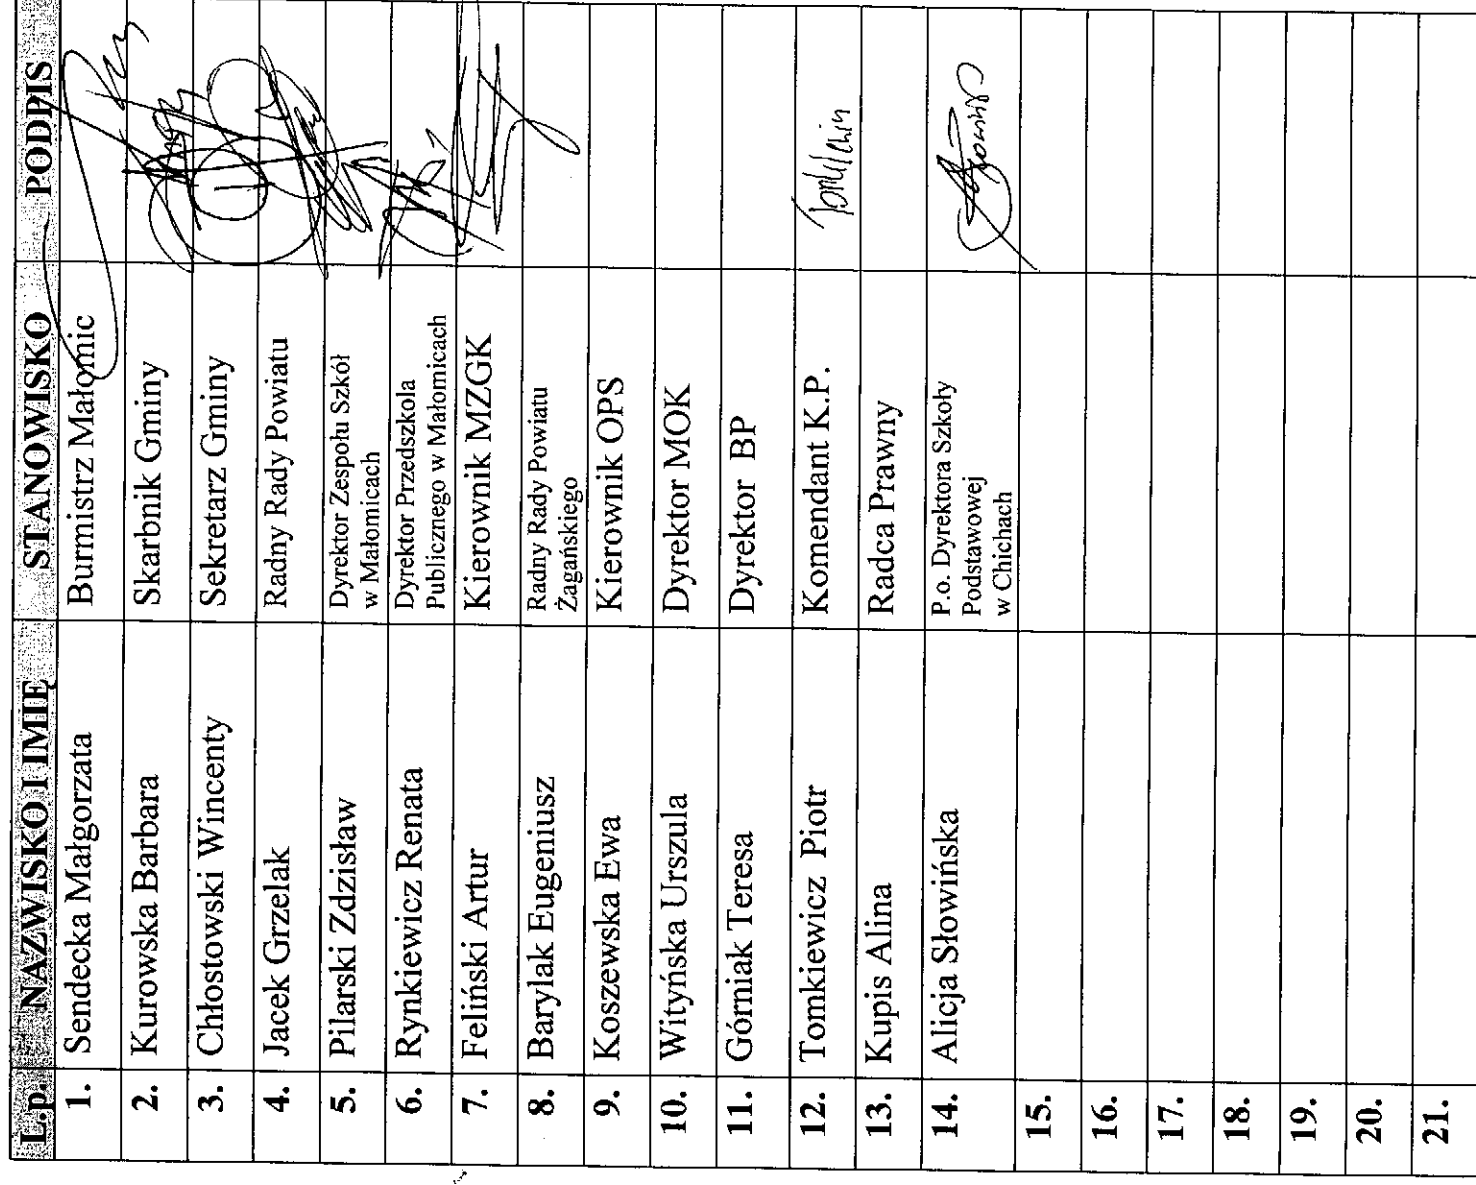 L.p. NAZWISKO I IMIĘ STANOWISKO PODPIS
1. Sendecka Małgorzata Burmistrz Małomic
2. Kurowska Barbara Skarbnik Gminy
3. Chłostowski Wincenty Sekretarz Gminy
4. Jacek Grzelak Radny Rady Powiatu
5. Pilarski Zdzisław Dyrektor Zespołu Szkół
w Małomicach
6. Rynkiewicz Renata Dyrektor Przedszkola
Publicznego w Małomicach
7. Feliński Artur Kierownik MZGK
8. Barylak Eugeniusz Radny Rady Powiatu
Żagańskiego
9. Koszewska Ewa Kierownik OPS
10. Wityńska Urszula Dyrektor MOK
11. Górniak Teresa Dyrektor BP
12. Tomkiewicz Piotr Komendant K.P.
13. Kupis Alina Radca Prawny
14. Alicja Słowińska P.o. Dyrektora Szkoły
Podstawowej
w Chichach
15.
16.
17.
18.
19.
20.
21.